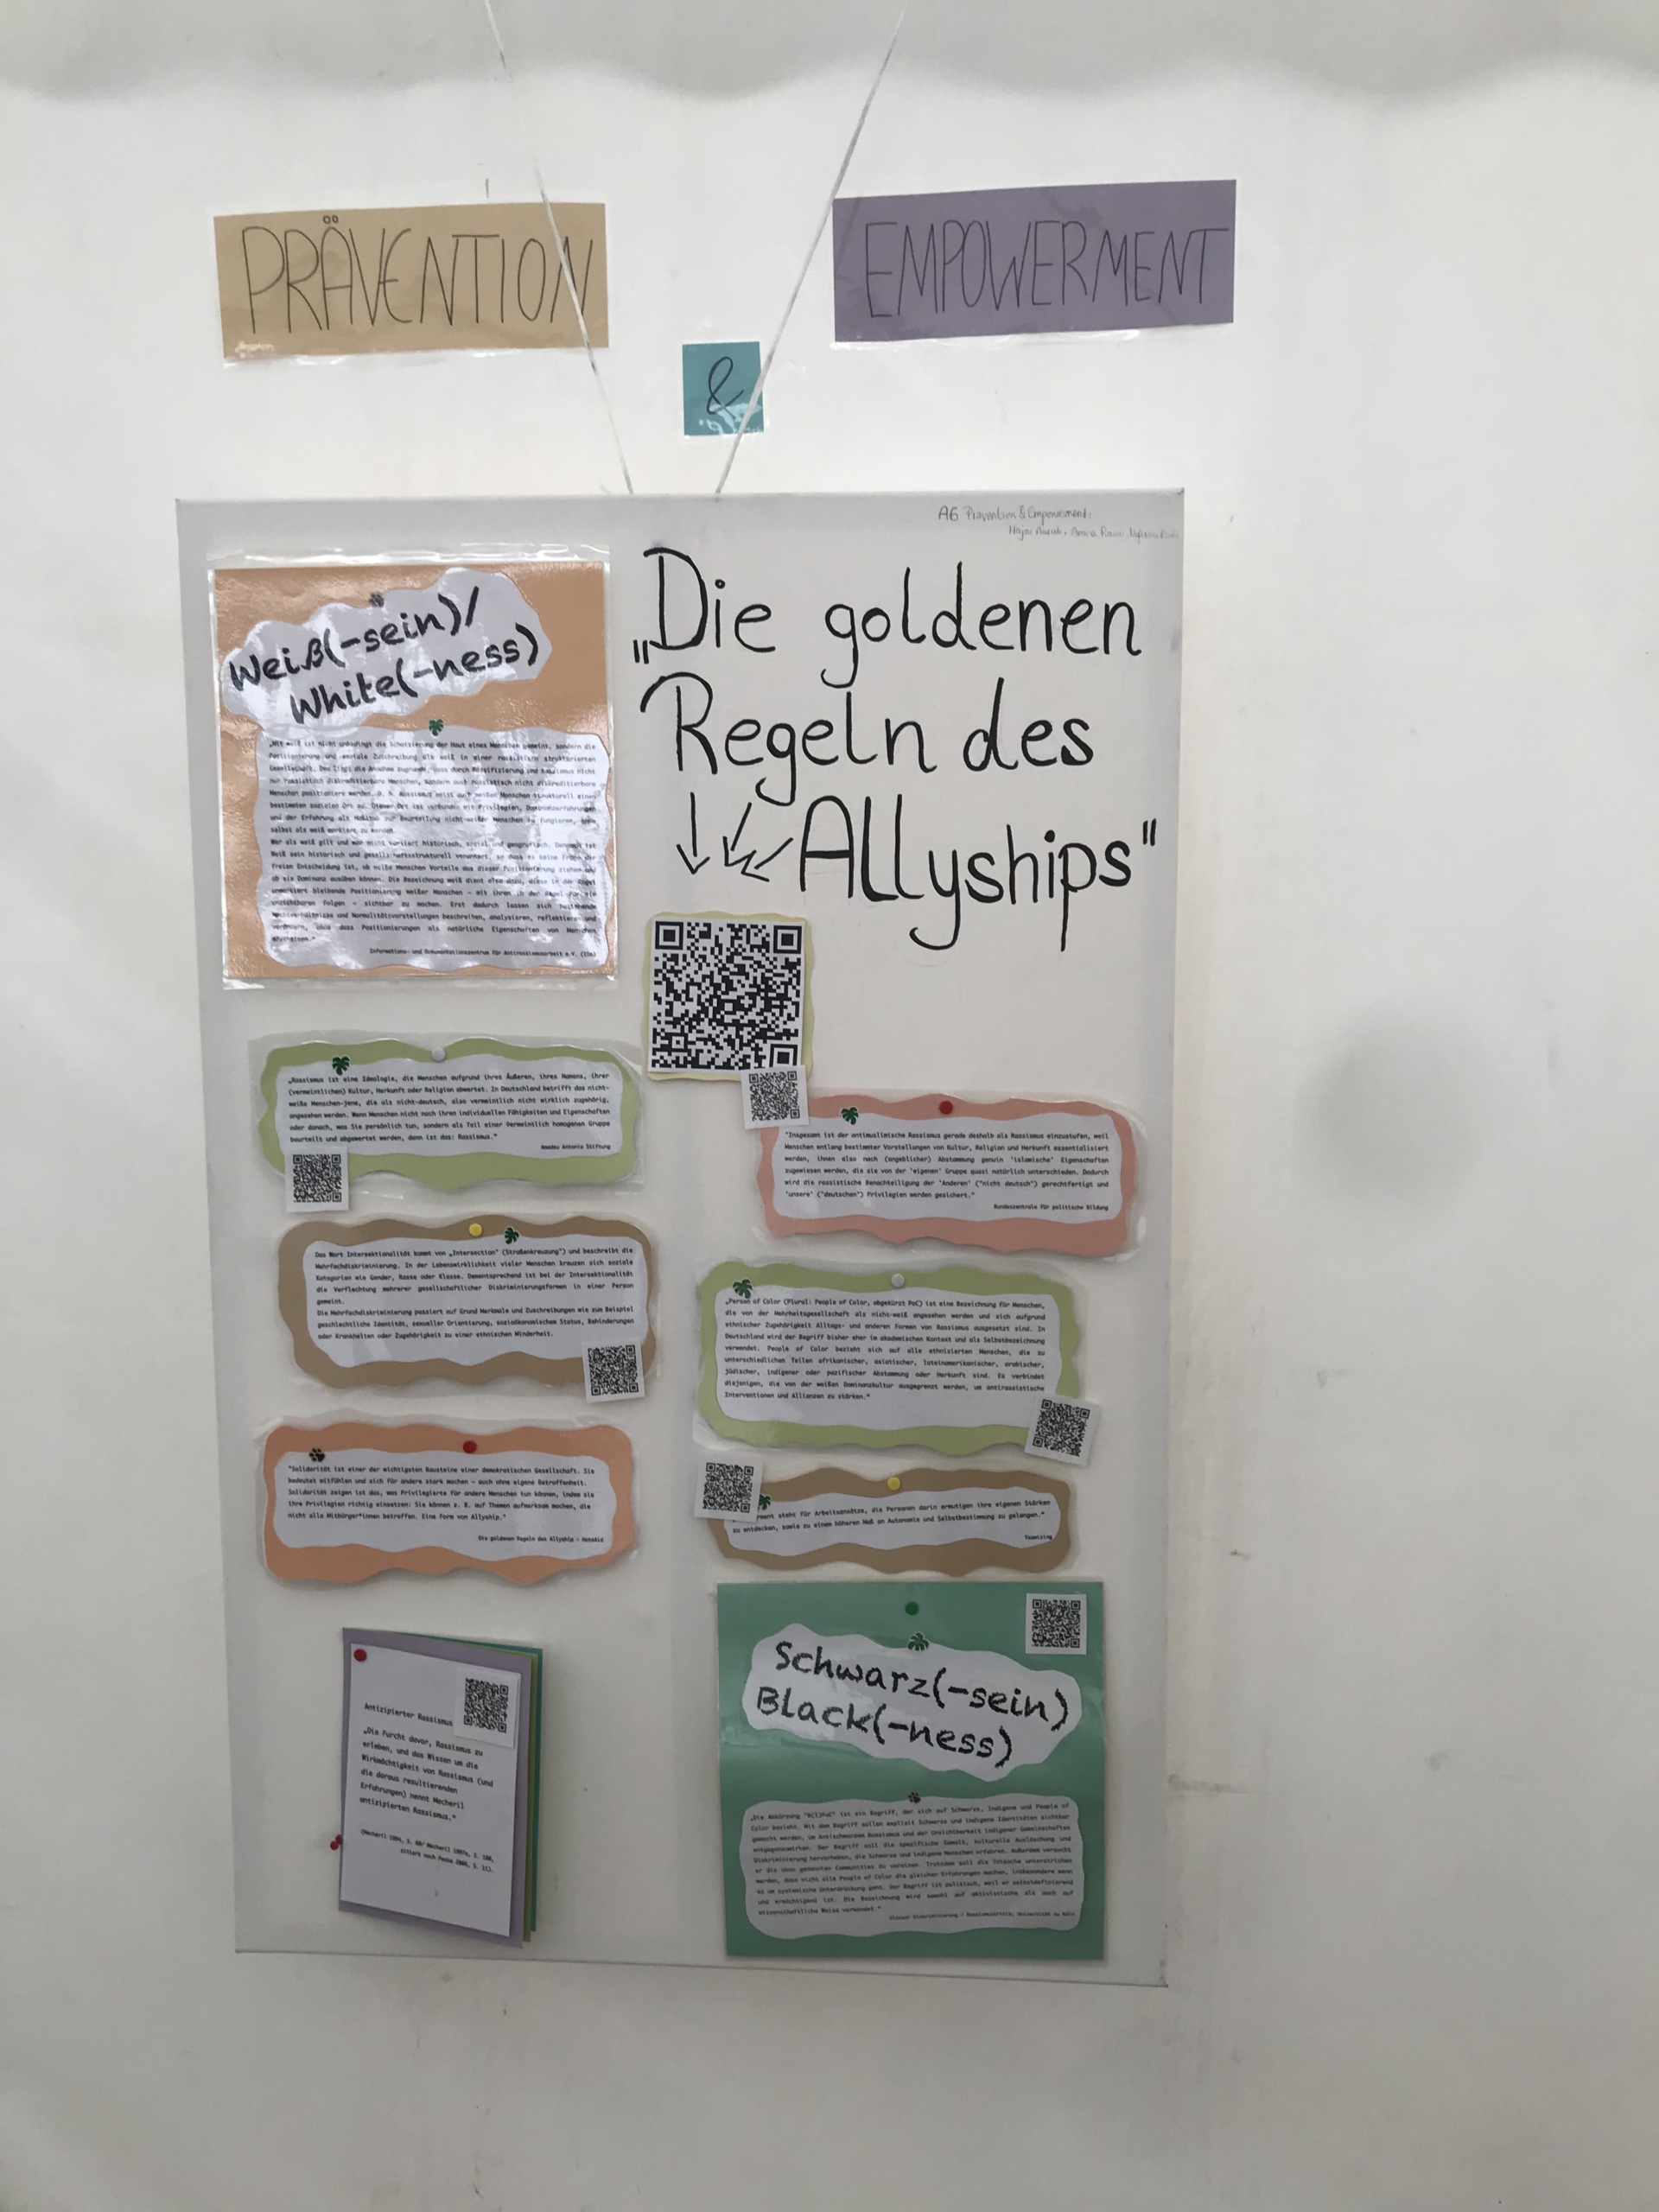 PRÄVENTION
&
EMPOWERMENT
A6 Prävention & Empowerment:
Weiß(-sein)/
White(-ness)
„Mit weiß ist nicht unbedingt die Schattierung der Haut eines Menschen gemeint, sondern die
Positionierung und soziale Zuschreibung als weiß in einer rassistisch strukturierten
Gesellschaft.
und der Erfahrung als Maßstab zur Beurteilung nicht-weißer Menschen zu fungieren, ohne
selbst als weiß markiert zu werden.
Wer als weiß gilt und wer nicht variiert historisch, sozial und geografisch.
Informations- und Dokumentationszentrum für Antirassismusarbeit e.V. (IDA)
„Die goldenen
Regeln des
Allyships"
„Rassismus ist eine Ideologie, die Menschen aufgrund ihres Äußeren, ihres Namens, ihrer
(vermeintlichen) Kultur, Herkunft oder Religion abwertet. In Deutschland betrifft das nicht-
weiße Menschen-jene, die als nicht-deutsch, also vermeintlich nicht wirklich zugehörig,
angesehen werden. Wenn Menschen nicht nach ihren individuellen Fähigkeiten und Eigenschaften
oder danach, was Sie persönlich tun, sondern als Teil einer Vermeintlich homogenen Gruppe
beurteilt und abgewertet werden, dann ist das: Rassismus."
Amadeu Antonio Stiftung
Das Wort Intersektionalität kommt von „Intersection" (Straßenkreuzung") und beschreibt die
Mehrfachdiskriminierung. In der Lebenswirklichkeit vieler Menschen kreuzen sich soziale
Kategorien wie Gender, Rasse oder Klasse. Dementsprechend ist bei der Intersektionalität
die Verflechtung mehrerer gesellschaftlicher Diskriminierungsformen in einer Person
gemeint.
Die Mehrfachdiskriminierung passiert auf Grund Merkmale und Zuschreibungen wie zum Beispiel
geschlechtliche Identität, sexueller Orientierung, sozioökonomischem Status, Behinderungen
oder Krankheiten oder Zugehörigkeit zu einer ethnischen Minderheit.
"Solidarität ist einer der wichtigsten Bausteine einer demokratischen Gesellschaft. Sie
bedeutet mitfühlen und sich für andere stark machen – auch ohne eigene Betroffenheit.
Solidarität zeigen ist das, was Privilegierte für andere Menschen tun können, indem sie
ihre Privilegien richtig einsetzen: Sie können z. B. auf Themen aufmerksam machen, die
nicht alle Mitbürger*innen betreffen. Eine Form von Allyship."
Die goldenen Regeln des Allyship – HateAid
Antizipierter Rassismus
„Die Furcht davor, Rassismus zu
erleben, und das Wissen um die
Wirkmächtigkeit von Rassismus (und
die daraus resultierenden
Erfahrungen) nennt Mecheril
antizipierten Rassismus."
"Insgesamt ist der antimuslimische Rassismus gerade deshalb als Rassismus einzustufen, weil
Menschen entlang bestimmter Vorstellungen von Kultur, Religion und Herkunft essentialisiert
werden, ihnen also nach (angeblicher) Abstammung genuin 'islamische' Eigenschaften
zugewiesen werden, die sie von der 'eigenen' Gruppe quasi natürlich unterschieden. Dadurch
wird die rassistische Benachteiligung der 'Anderen' ("nicht deutsch") gerechtfertigt und
'unsere' ("deutschen") Privilegien werden gesichert."
Bundeszentrale für politische Bildung
„Person of Color (Plural: People of Color, abgekürzt PoC) ist eine Bezeichnung für Menschen,
die von der Mehrheitsgesellschaft als nicht-weiß angesehen werden und sich aufgrund
ethnischer Zugehörigkeit Alltags- und anderen Formen von Rassismus ausgesetzt sind. In
Deutschland wird der Begriff bisher eher im akademischen Kontext und als Selbstbezeichnung
verwendet. People of Color bezieht sich auf alle ethnizierten Menschen, die zu
unterschiedlichen Teilen afrikanischer, asiatischer, lateinamerikanischer, arabischer,
jüdischer, indigener oder pazifischer Abstammung oder Herkunft sind. Es verbindet
diejenigen, die von der weißen Dominanzkultur ausgegrenzt werden, um antirassistische
Interventionen und Allianzen zu stärken."
steht für Arbeitsansätze, die Personen darin ermutigen ihre eigenen Stärken
zu entdecken, sowie zu einem höheren Maß an Autonomie und Selbstbestimmung zu gelangen."
Schwarz(-sein)
Black(-ness)
„Die Abkürzung "B(I)PoC" ist ein Begriff, der sich auf Schwarze, Indigene und People of
Color bezieht. Mit dem Begriff sollen explizit Schwarze und indigene Identitäten sichtbar
gemacht werden, um Antischwarzem Rassismus und der Unsichtbarkeit indigener Gemeinschaften
entgegenzuwirken. Der Begriff soll die spezifische Gewalt, kulturelle Auslöschung und
Diskriminierung hervorheben, die Schwarze und indigene Menschen erfahren. Außerdem versucht
er die oben genannten Communities zu vereinen. Trotzdem soll die Tatsache unterstrichen
werden, dass nicht alle People of Color die gleichen Erfahrungen machen, insbesondere wenn
es um systemische Unterdrückung geht. Der Begriff ist politisch, weil er selbstdefinierend
und ermächtigend ist. Die Bezeichnung wird sowohl auf aktivistische als auch auf
wissenschaftliche Weise verwendet."